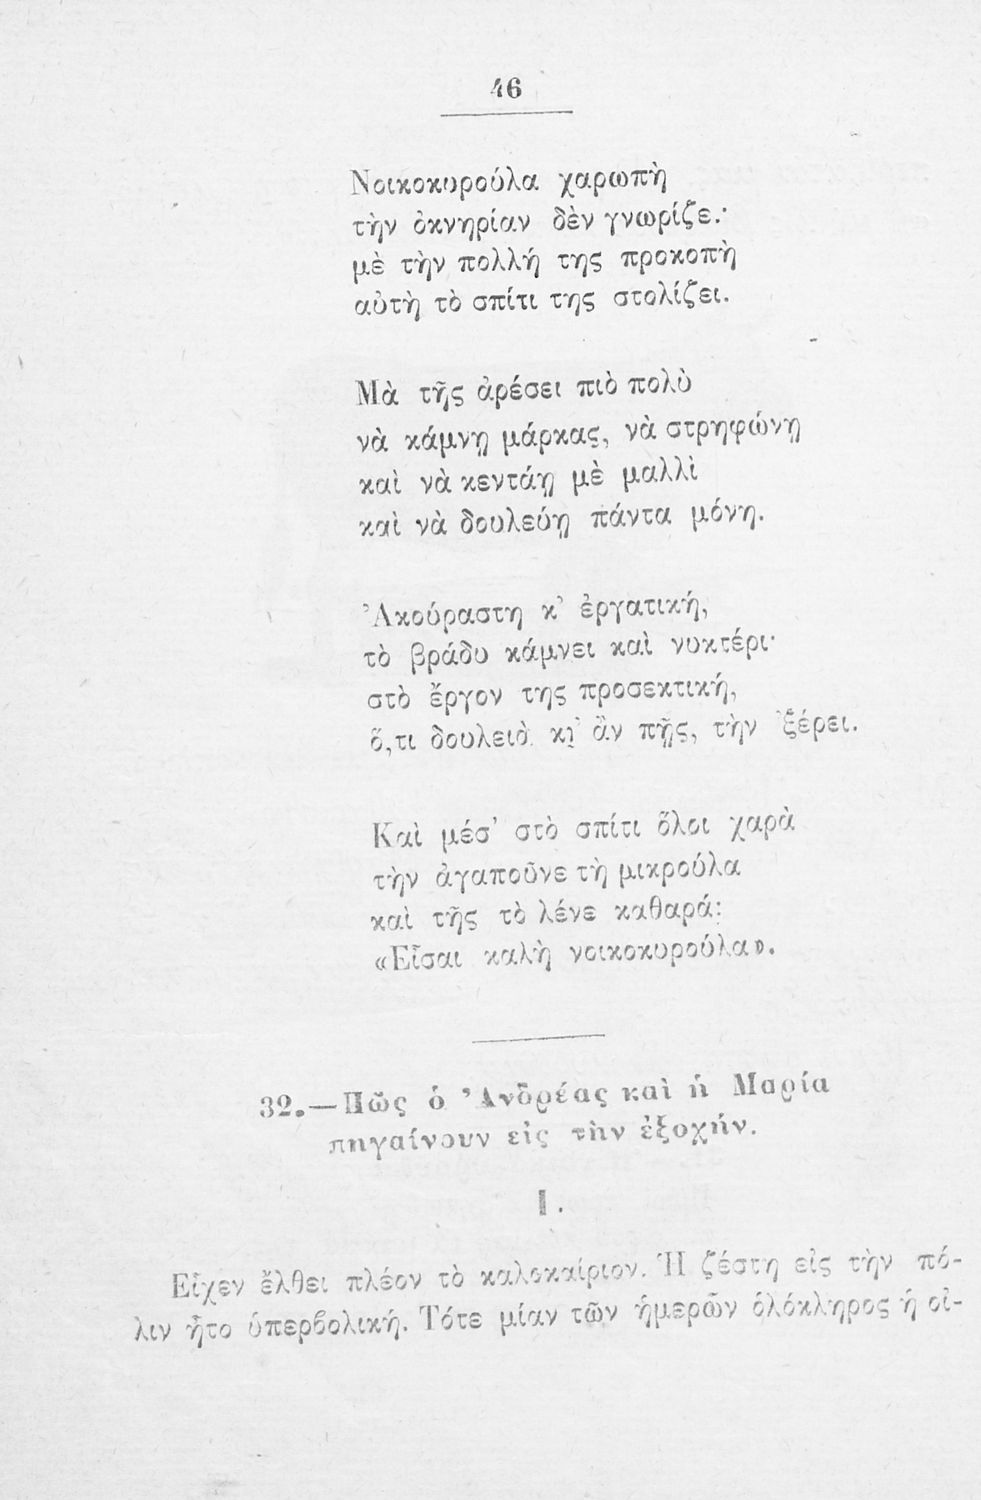 46
Νοικοκυρούλα χαρωπὴ
τὴν ὀκνηρίαν δὲν γνωρίζει·
μὲ τὴν πολλή της προκοπὴ
αὐτὴ τὸ σπίτι της στολίζει.
Μὰ τῆς ἀρέσει πιὸ πολὺ
νὰ κάμνῃ μάρκας, νὰ στρηφώνῃ
καὶ νὰ κεντάῃ μὲ μαλλὶ
καὶ νὰ δουλεύῃ πάντα μόνη.
Ἀκούραστη κ’ ἐργατική,
τὸ βράδυ κάμνει καὶ νυκτέρι·
στὸ ἔργον της προσεκτική,
ὅ,τι δουλειὰ κι’ ἂν πῇς, τὴν ’ξέρει.
Καὶ μέσ’ στὸ σπίτι ὅλοι χαρὰ
τὴν ἀγαποῦνε τὴ μικρούλα
καὶ τῆς τὸ λένε καθαρά:
«Εἶσαι καλὴ νοικοκυρούλα».
32.—Πῶς ὁ Ἀνδρέας καὶ ἡ Μαρία
πηγαίνουν εἰς τὴν ἐξοχήν.
I.
Εἶχεν ἔλθει πλέον τὸ καλοκαίριον. Ἡ ζέστη εἰς τὴν πό-
λιν ἦτο ὑπερβολική. Τότε μίαν τῶν ἡμερῶν ὁλόκληρος ἡ οἰ-